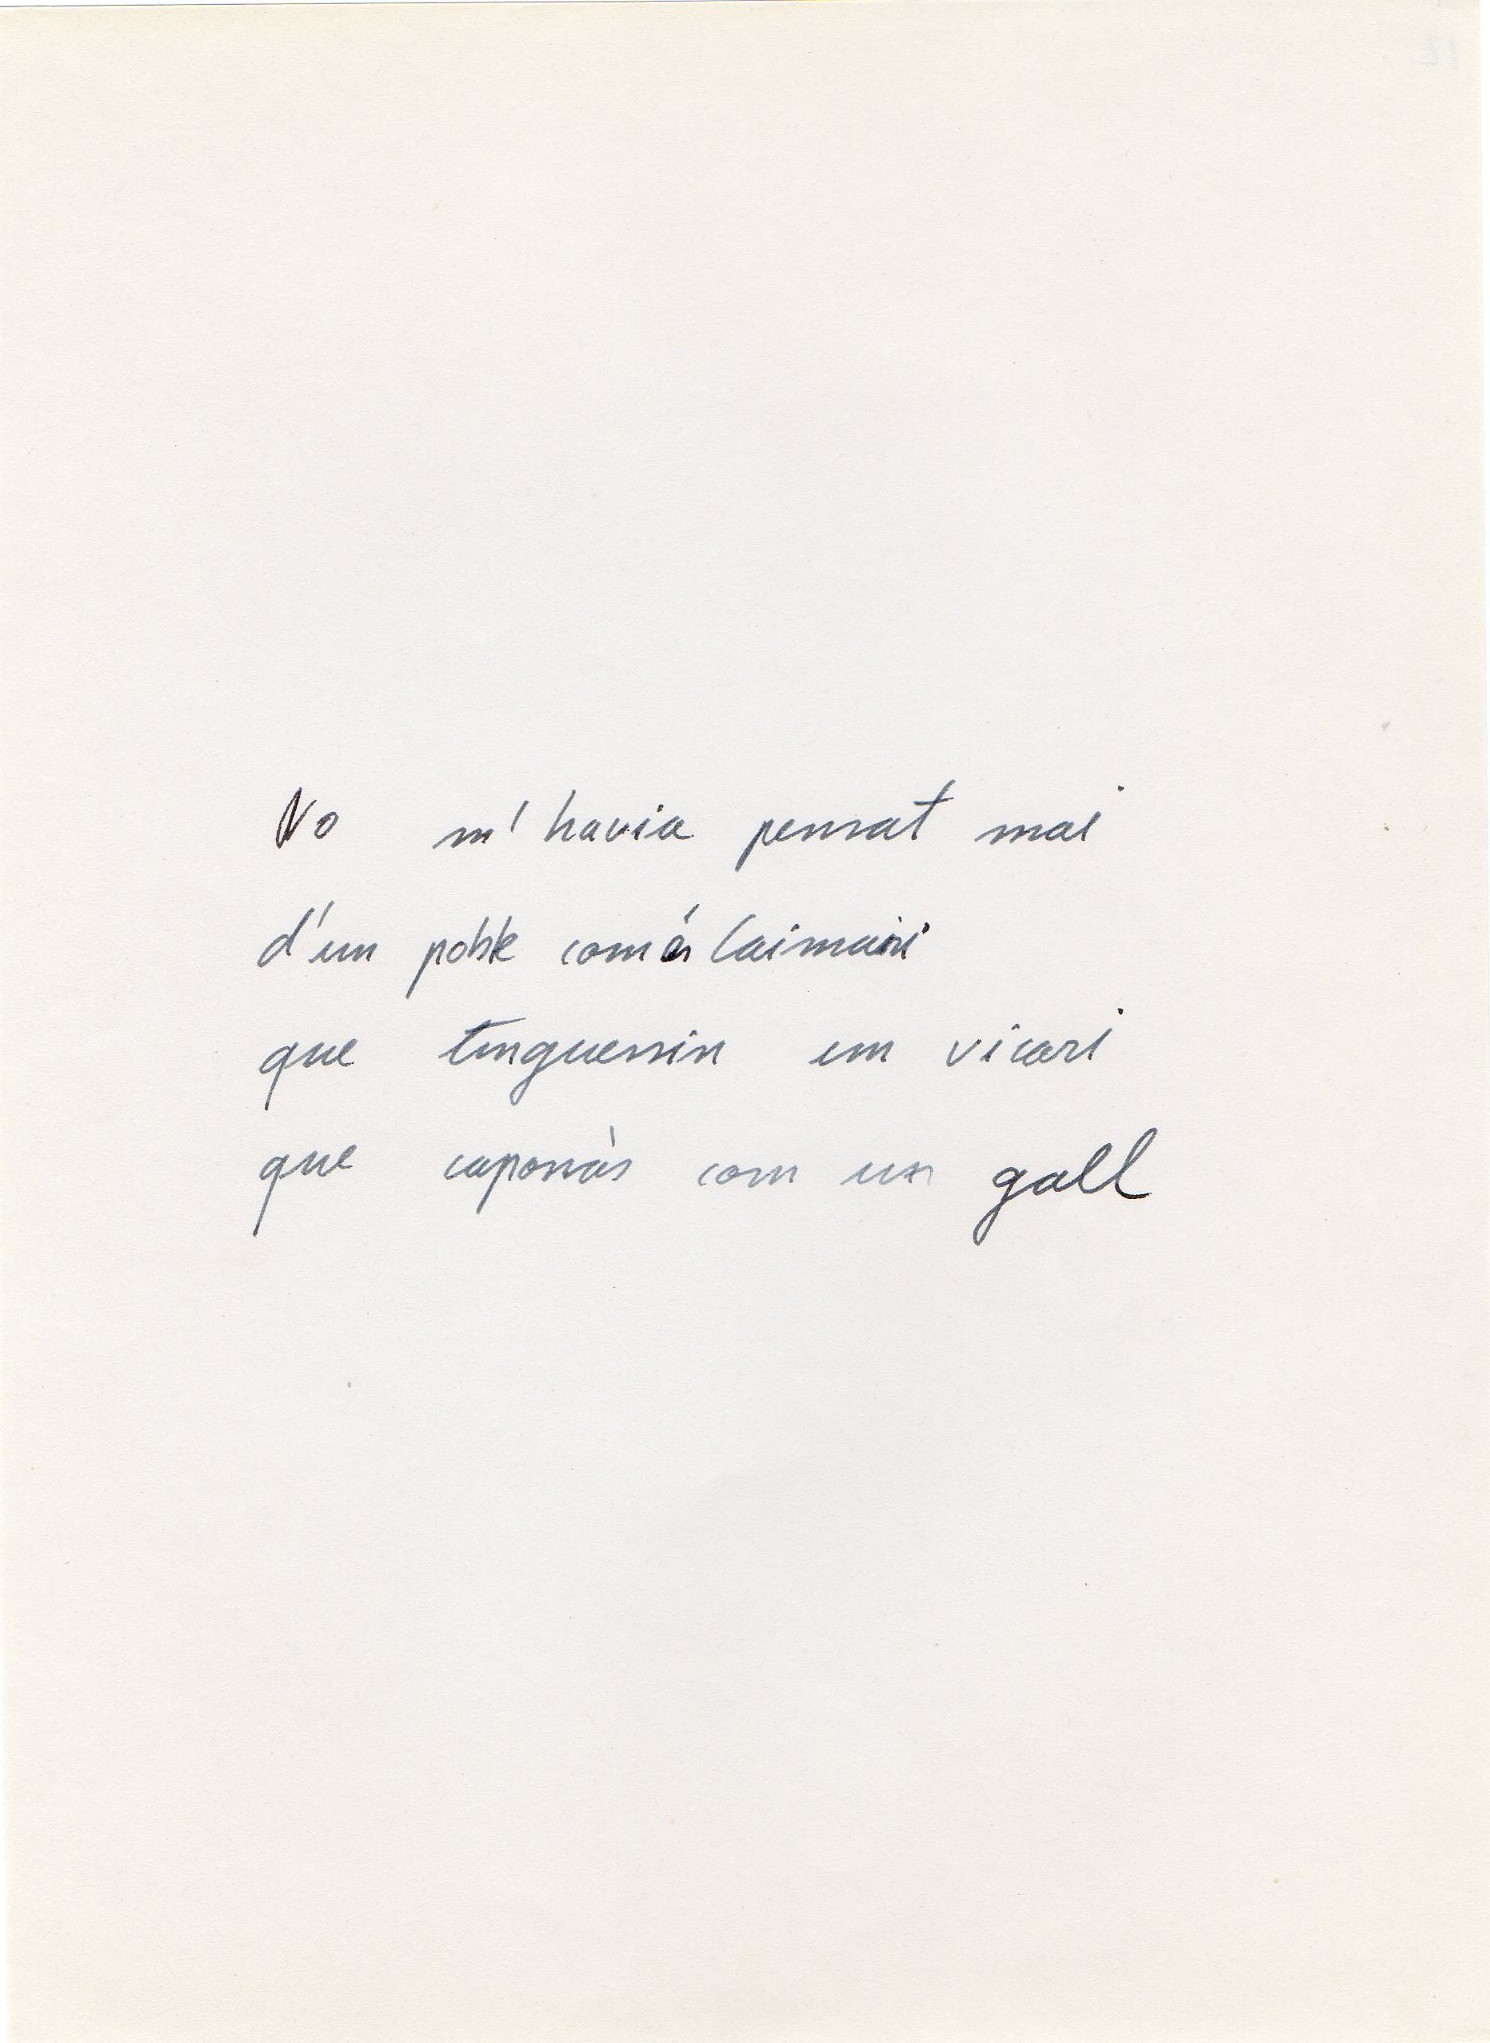 No m'havia pensat mai
d'un poble com és Caimari
que tenguessin un vicari
que caponàs com un gall